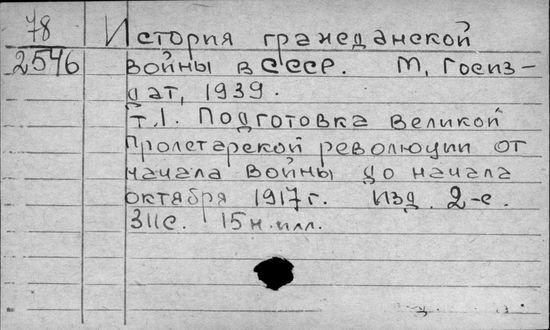 78 История гражданской
2546 войны в СССР. М, Госиз-
дат, 1939.
т.1. Подготовка великой
пролетарской революции от
начала войны до начала
октября 1917 г. изд. 2-е.
311с. 15 н.илл.